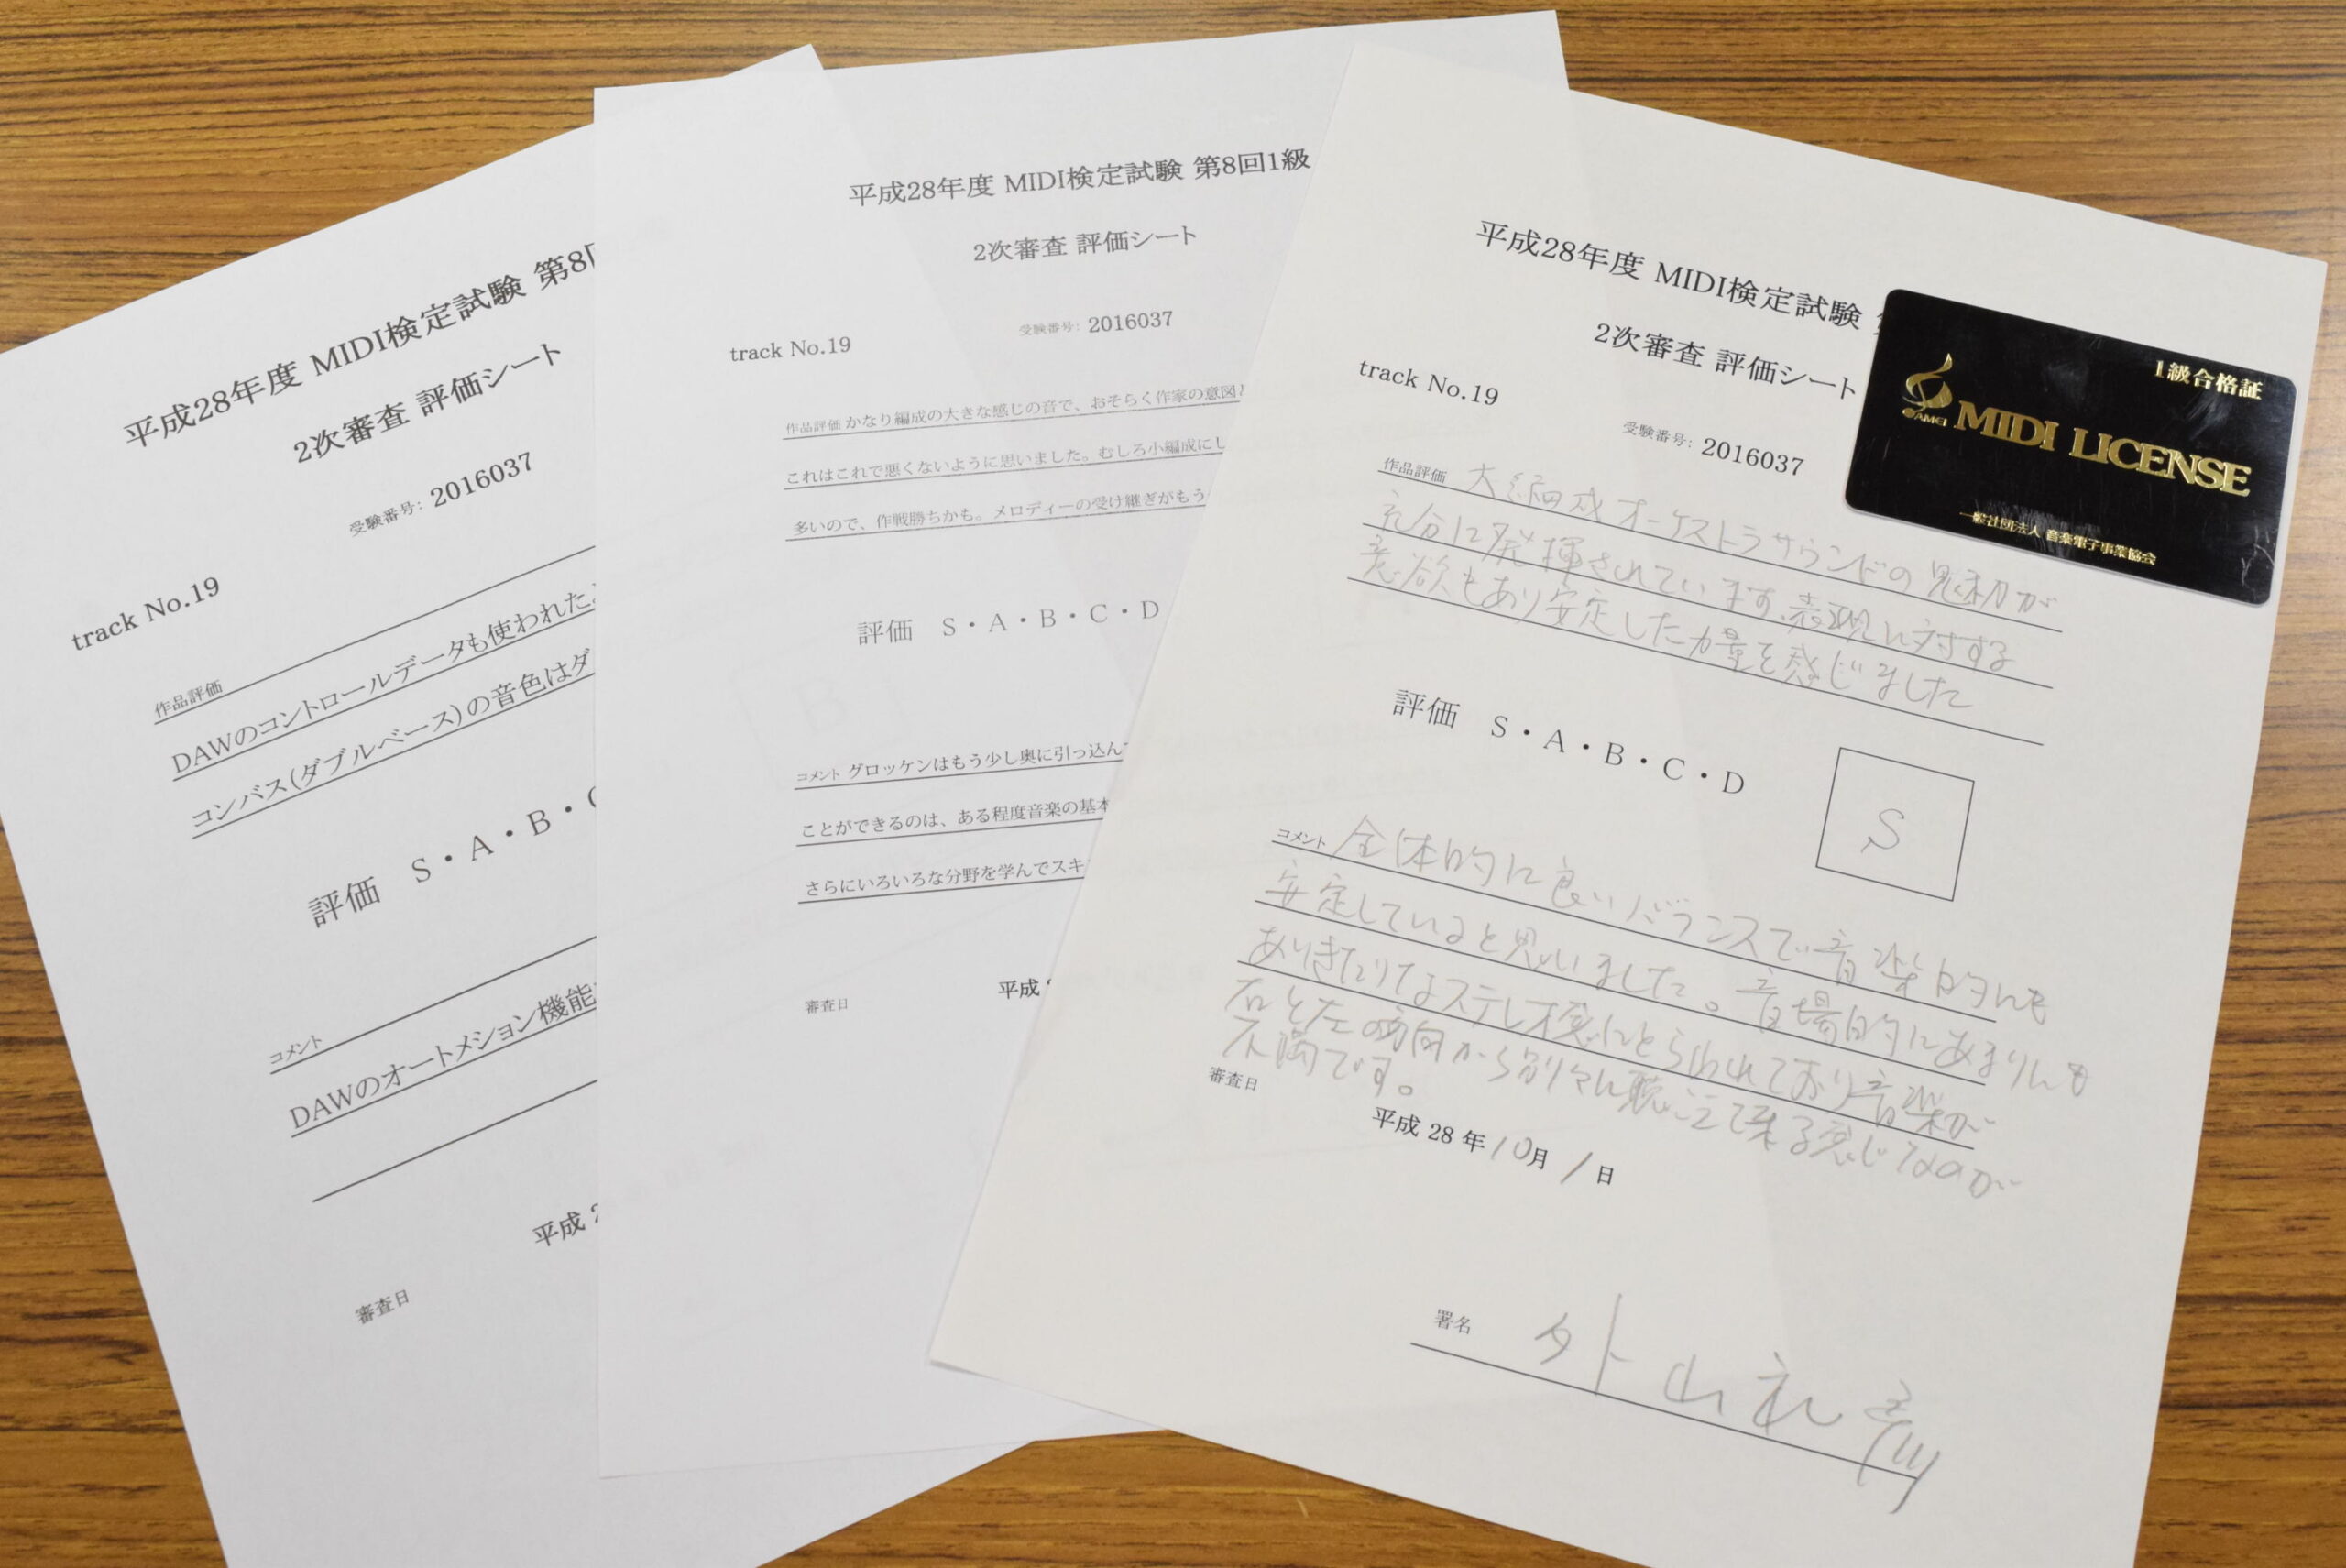 平成28年度 MIDI検定試験 第8
2次審査 評価シート
受験番号: 2016037
track No.19
作品評価
DAWのコントロールデータも使われた
コンバス(ダブルベース)の音色はダ
評価 S・A・B・C
コメント
DAWのオートメション機能
平成 2
審査日
平成28年度 MIDI検定試験 第8回1級
2次審査 評価シート
受験番号: 2016037
track No.19
作品評価 かなり編成の大きな感じの音で、おそらく作家の意図と
これはこれで悪くないように思いました。むしろ小編成にし
多いので、作戦勝ちかも。メロディーの受け継ぎがもう
評価 S・A・B・C・D
B
コメント グロッケンはもう少し奥に引っ込んで
ことができるのは、ある程度音楽の基本
さらにいろいろな分野を学んでスキ
審査日 平成
平成28年度 MIDI検定試験
2次審査 評価シート
track No.19
受験番号: 2016037
作品評価 大編成オーケストラサウンドの魅力が
充分に発揮されています。表現に対する
意欲もあり安定した力量を感じました
評価 S・A・B・C・D
S
コメント 全体的に良いバランスで音楽的にも
安定していると思いました。音場的にあまりにも
ありきたりなステレオ感にとらわれており音楽が
右と左の方向から別々に聴こえて来る感じなのが
不満です。
審査日
平成 28 年 10月 1 日
署名 外山和彦
1級合格証
AMEI MIDI LICENSE
一般社団法人 音楽電子事業協会